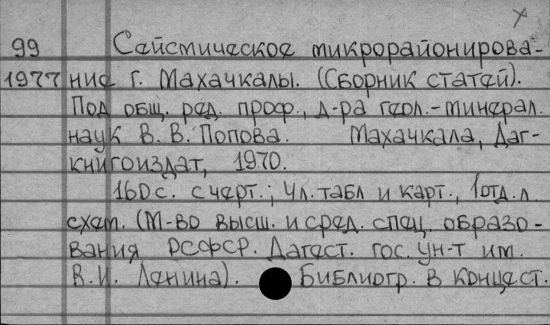 99 Сейсмическое микрорайонирова-
1977 ние г. Махачкалы. (Сборник статей).
Под общ. ред. проф., д-ра геол.-минерал.
наук В. В. Попова. Махачкала, Даг-
книгоиздат, 1970.
160 с. с черт.; 4 л. табл и карт., 1 отд. л.
схем. (М-во высш. и сред. спец. образо-
вания РСФСР. Дагест. гос. ун-т им.
В. И. Ленина). Библиогр. в конце ст.